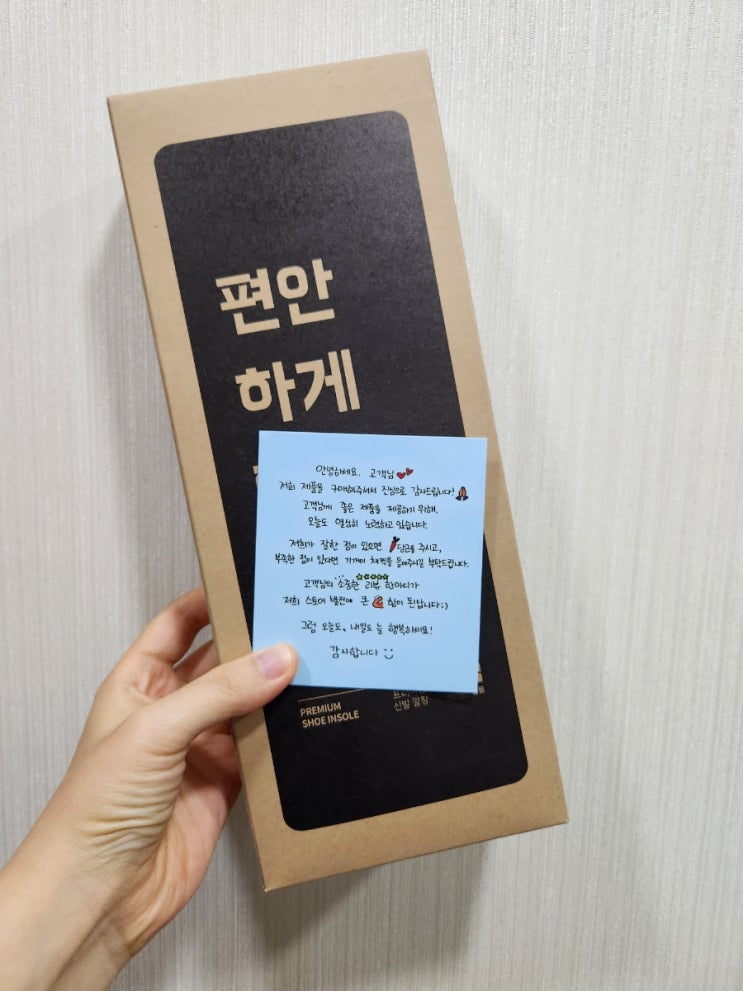 편안
하게
안녕하세요. 고객님
저희 제품을 구매해주셔서 진심으로 감사드립니다!
고객님께 좋은 제품을 제공하기 위해,
오늘도 열심히 노력하고 있습니다.
저희가 잘한 점이 있으면 당근을 주시고,
부족한 점이 있다면 가기에 채찍을 들어주시길 부탁드립니다.
고객님의 소중한 리뷰 한마디가
저희 스토어 발전에 큰 힘이 된답니다:)
그럼 오늘도, 내일도 늘 행복하세요!
감사합니다
PREMIUM
SHOE INSOLE
신발 깔창